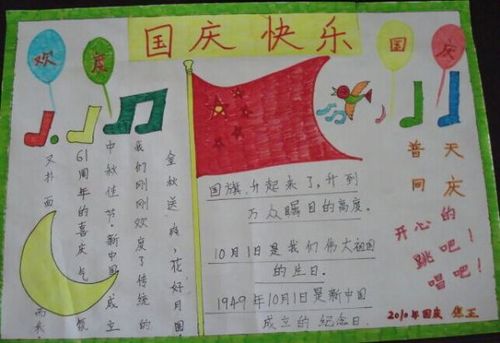 国庆 快乐
欢 度 国 庆
金秋送爽，花好月圆
我们刚刚欢度了传统的
中秋佳节，新中国成立
61周年的喜庆气氛
又扑面而来
国旗升起来了，升到
万众瞩目的高度。
10月1日是我们伟大祖国
的生日。
1949年10月1日是新中国
成立的纪念日.
普天
同庆
开心的
跳吧！
唱吧！
2010年国庆